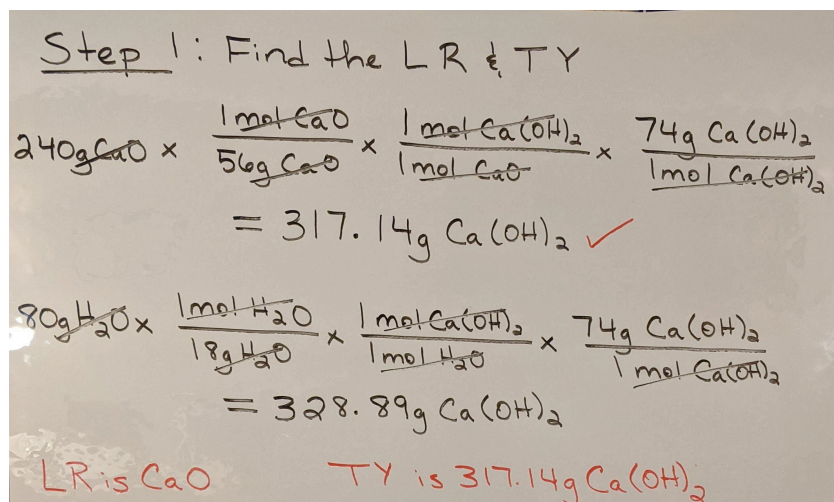 Step 1: Find the LR & TY
240g CaO x 1 mol CaO / 56g CaO x 1 mol Ca(OH)₂ / 1 mol CaO x 74g Ca(OH)₂ / 1 mol Ca(OH)₂
= 317.14g Ca(OH)₂ ✓
80g H₂O x 1 mol H₂O / 18g H₂O x 1 mol Ca(OH)₂ / 1 mol H₂O x 74g Ca(OH)₂ / 1 mol Ca(OH)₂
= 328.89g Ca(OH)₂
LR is CaO TY is 317.14g Ca(OH)₂